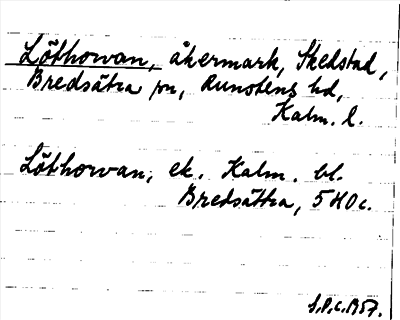 Löthorvan, åkermark, Skedstad,
Bredsätra sn, Runstens hd,
Kalm. l.
Löthorvan, ek. Kalm. bl.
Bredsätra, 5 H 0 c.
S.P.C. 1957.